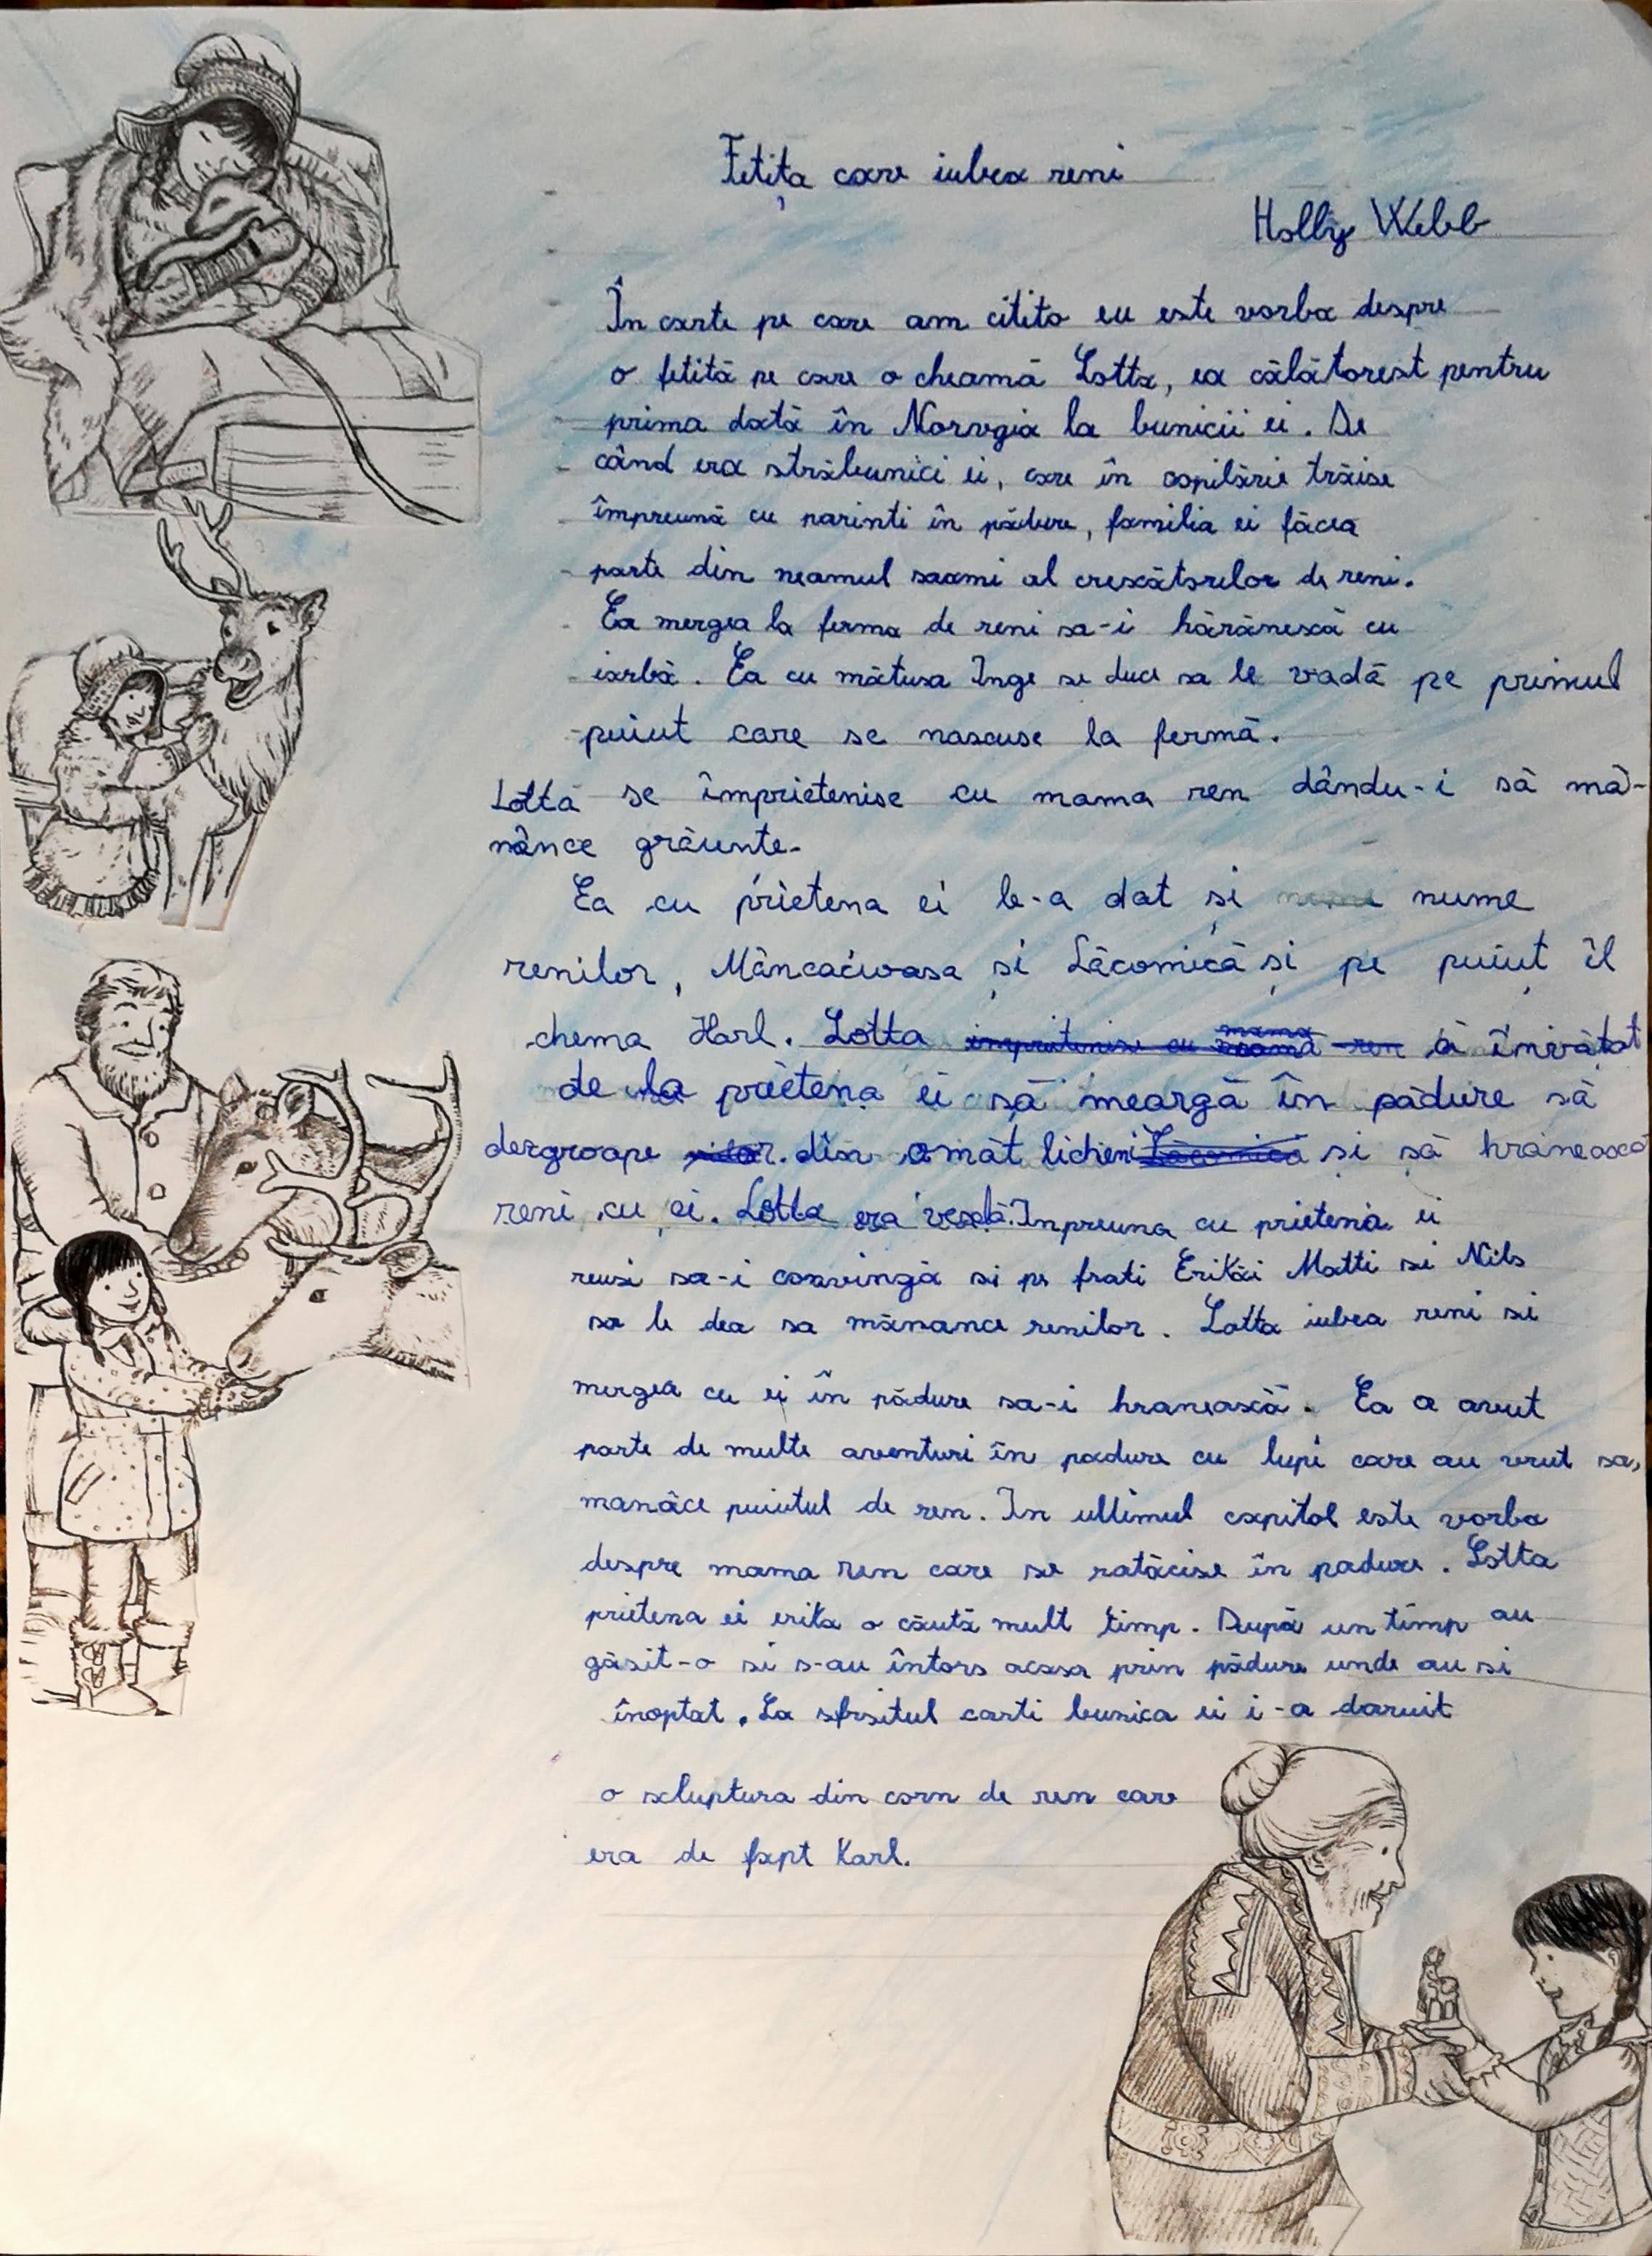 Fetița care iubea reni
Holly Webb
În carte pe care am citito eu este vorba despre
o fetită pe care o cheamă Lotta, ea călătorest pentru
prima dată în Norvgia la bunicii ei. De
când era străbunici ei, care în copilărie trăise
împreună cu parinti în pădure, familia ei făcea
parte din neamul saami al crescătorilor de reni.
Ea mergea la ferma de reni sa-i hărănescă cu
iarbă. Ea cu mătusa Inge se duce sa le vadă pe primul
puiut care se nascuse la fermă.
Lotta se împrietenise cu mama ren dându-i să mă-
nânce grăunte.
Ea cu prietena ei le-a dat și nume
renilor, Mâncacioasa și Lăcomică și pe puiuț îl
chema Harl. Lotta a învățat
de la prietena ei să meargă în pădure să
dezgroape din omăt licheni și să hrănească
reni cu ei. Lotta era veselă. Inpreuna cu prietena ei
reusi sa-i convingă si pe frati Erikăi Matti si Nils
sa le dea sa mănance renilor. Lotta iubea reni si
mergea cu ei în pădure sa-i hranească. Ea a avut
parte de multe aventuri în padure cu lupi care au vrut sa,
manâce puiutul de ren. In ultimul capitol este vorba
despre mama ren care se ratăcise în padure. Lotta
prietena ei erika o căută mult timp. După un timp au
găsit-o si s-au întors acasa prin pădure unde au si
înoptat. La sfrsitul carti bunica ei i-a daruit
o scluptura din corn de ren care
era de fapt Karl.